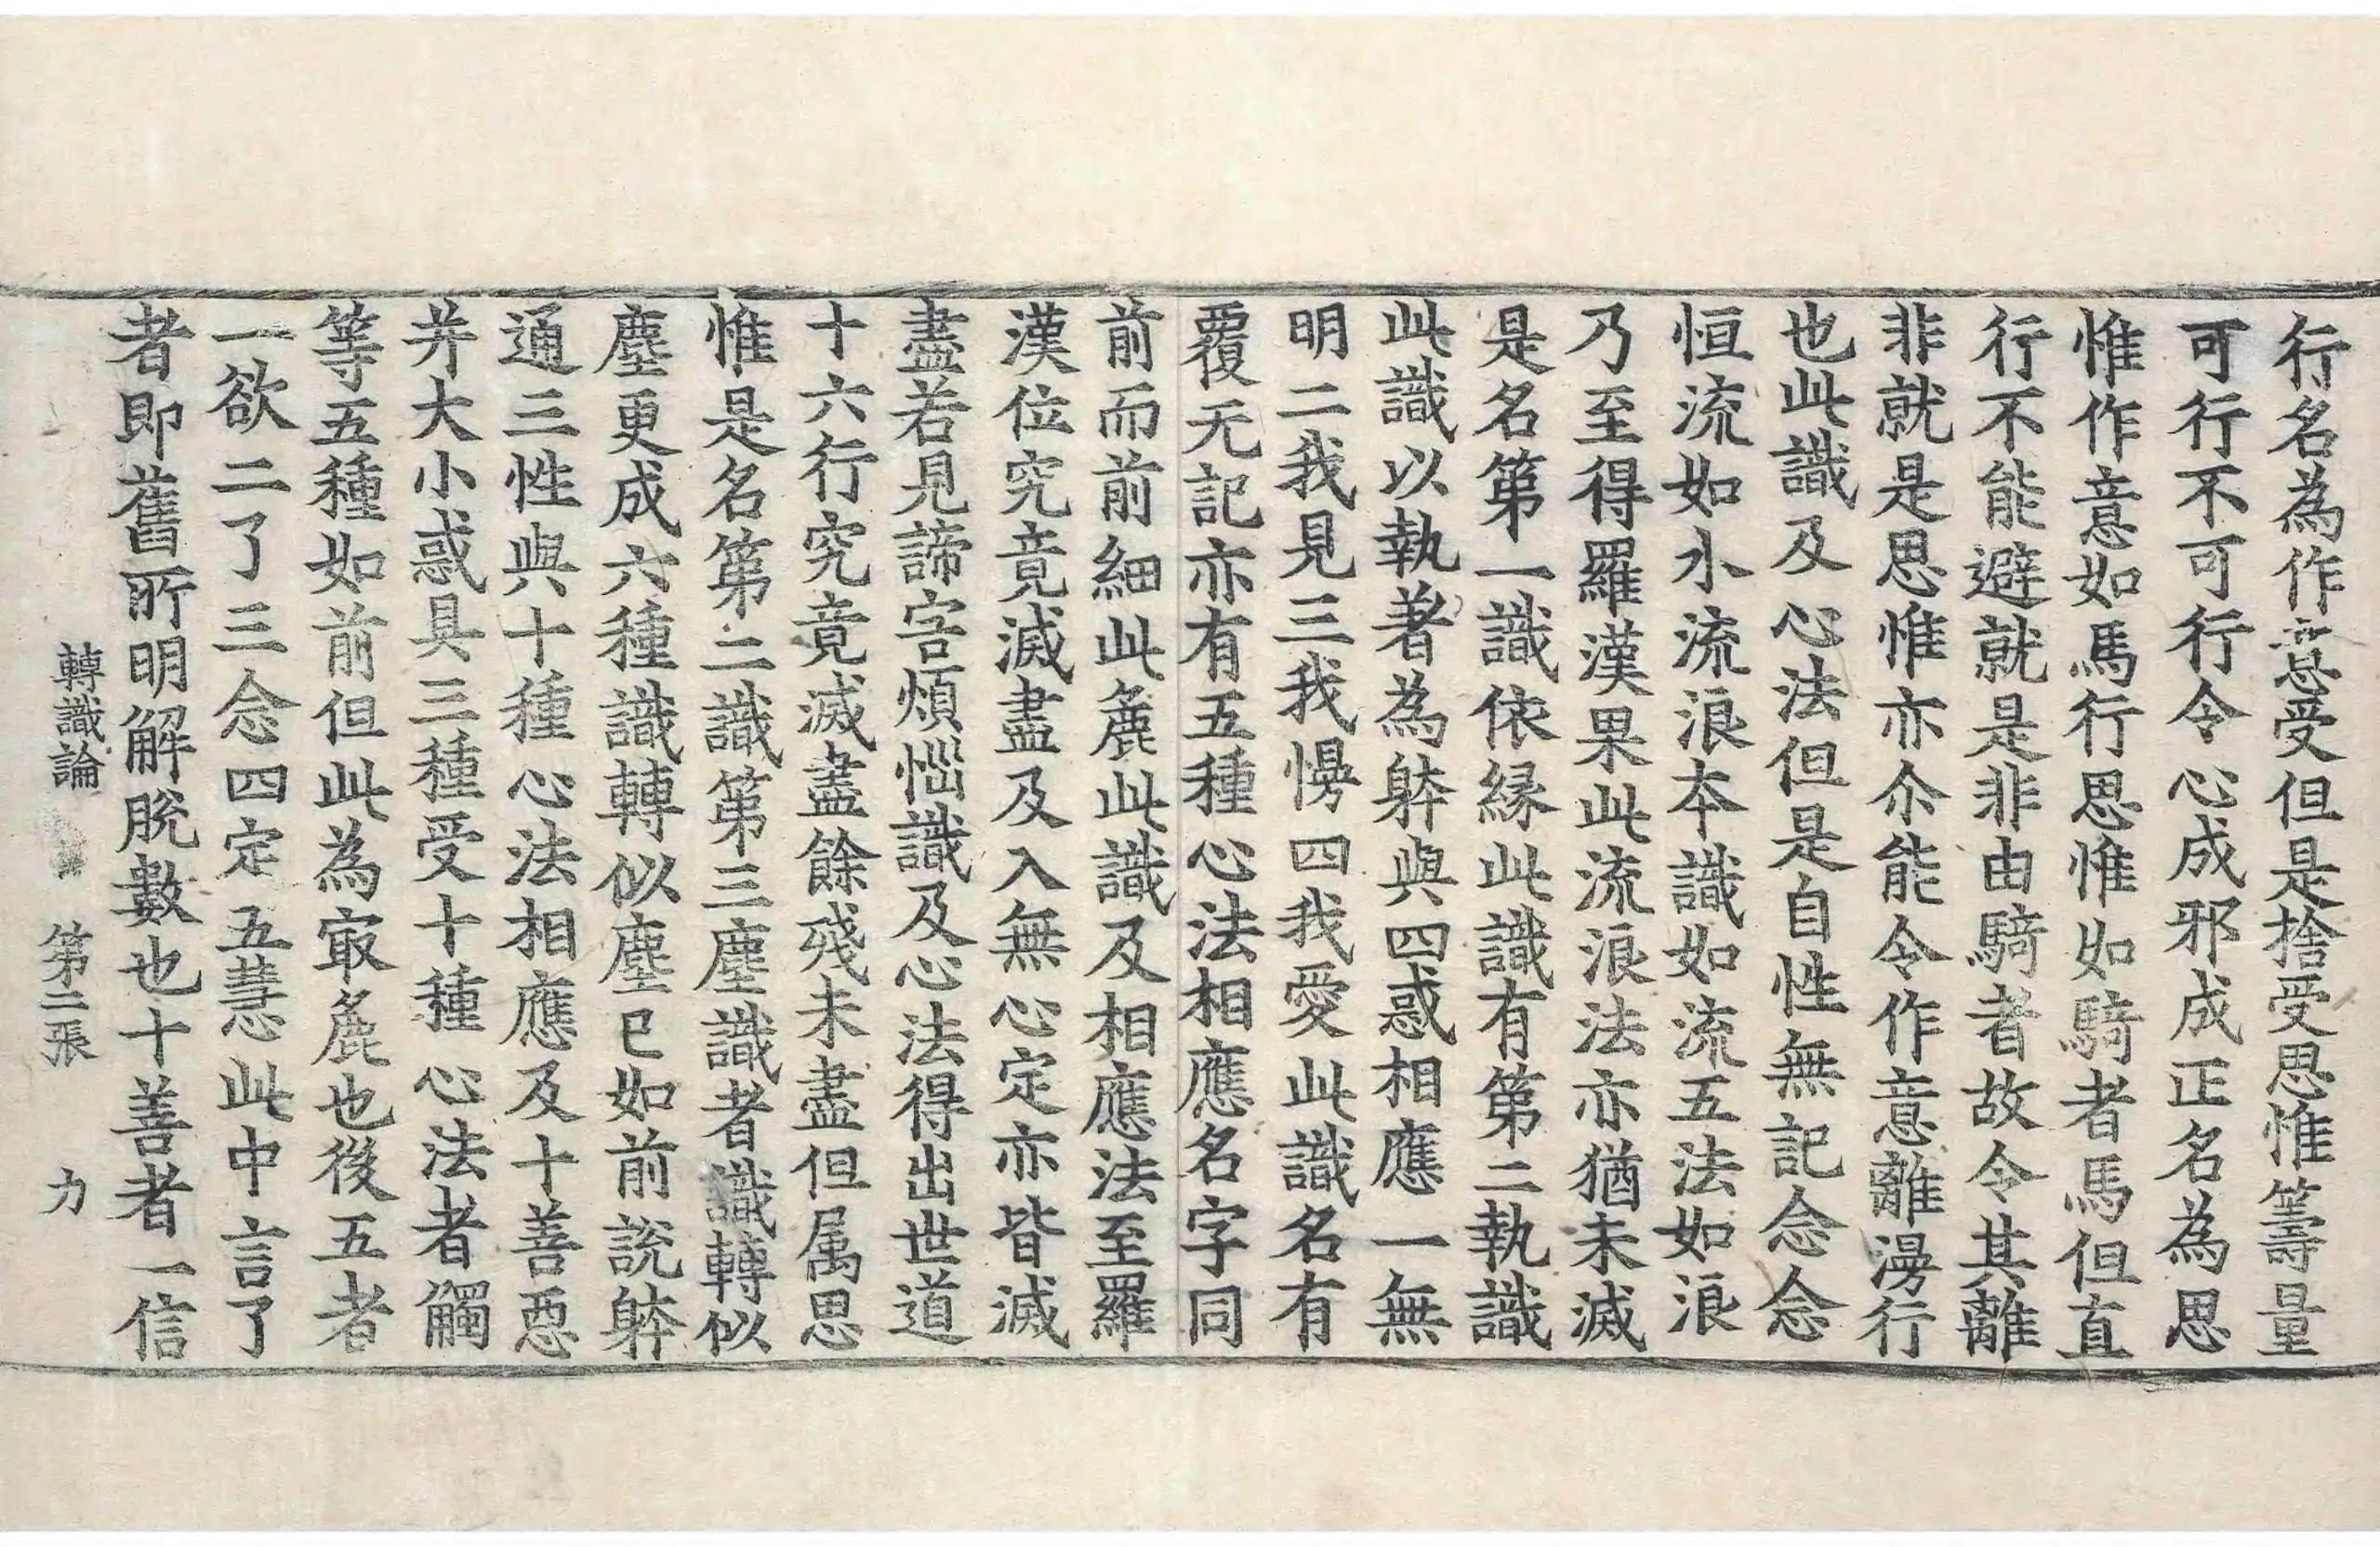 行名為作意受但是捨受思惟籌量
可行不可行令心成邪成正名為思
惟作意如馬行思惟如騎者馬但直
行不能避就是非由騎者故令其離
非就是思惟亦尒能令作意離漫行
也此識及心法但是自性無記念念
恒流如水流浪本識如流五法如浪
乃至得羅漢果此流浪法亦猶未滅
是名第一識依緣此識有第二執識
此識以執著為躰與四惑相應一無
明二我見三我慢四我愛此識名有
覆无記亦有五種心法相應名字同
前而前細此麁此識及相應法至羅
漢位究竟滅盡及入無心定亦皆滅
盡若見諦害煩惱識及心法得出世道
十六行究竟滅盡餘殘未盡但属思
惟是名第二識第三塵識者識轉似
塵更成六種識轉似塵已如前說躰
通三性與十種心法相應及十善惡
并大小惑具三種受十種心法者觸
等五種如前但此為冣麁也後五者
一欲二了三念四定五慧此中言了
者即舊所明解脫數也十善者一信
轉識論 第二張 力